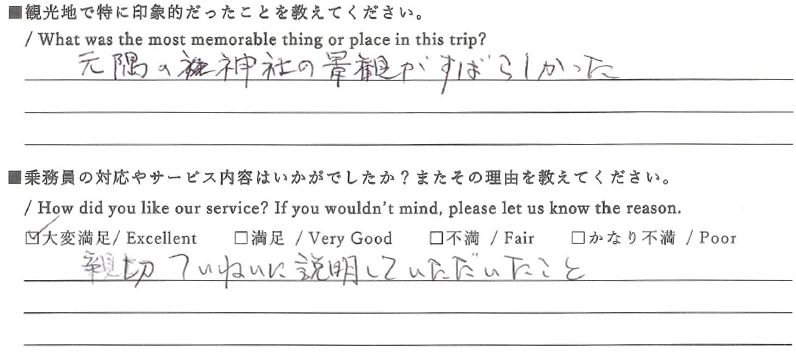 ■観光地で特に印象的だったことを教えてください。
/ What was the most memorable thing or place in this trip?
元隅の神社の景観がすばらしかった
■乗務員の対応やサービス内容はいかがでしたか？またその理由を教えてください。
/ How did you like our service? If you wouldn't mind, please let us know the reason.
☑大変満足/ Excellent □満足 / Very Good □不満 / Fair □かなり不満 / Poor
親切ていねいに説明していただいたこと